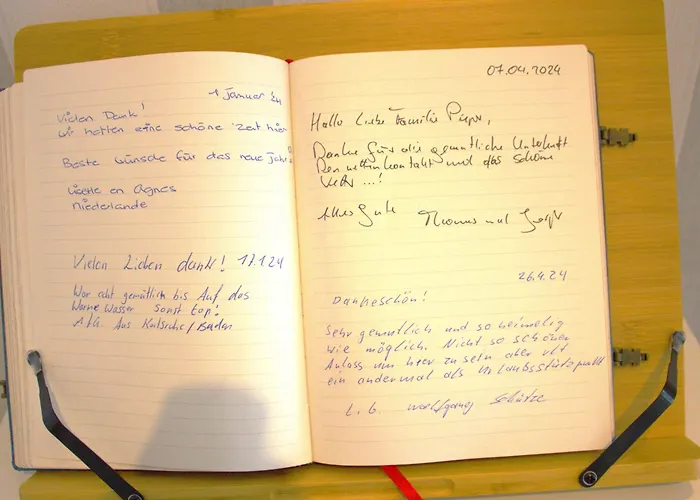 1 Januar 24
Vielen Dank!
wir hatten eine schöne Zeit hier
Beste wünsche für das neue Jahr
Lisette en Agnes
Niederlande
Vielen Lieben dank! 17.1.24
War echt gemütlich bis Auf das
Warme Wasser sonst top!
Aus Karlsruhe/Baden
07.04.2024
Hallo Liebe Familie
Danke für die gemütliche Unterkunft
Den netten Kontakt und das schöne
...!
Alles Gute
Thomas und
26.4.24
Dankeschön!
Sehr gemütlich und so heimelig
wie möglich. Nicht so schöner
Anlass um hier zu sein aber
ein andermal als Urlaubsstützpunkt
L. G. Wolfgang Schütze